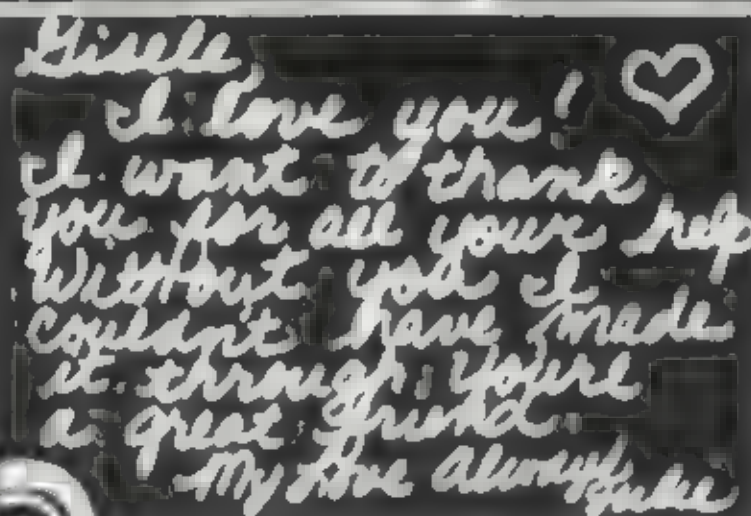 Giselle
I love you!
I want to thank
you for all your help
Without you I
couldnt have made
it through, youre
a great friend
My love always
Julie